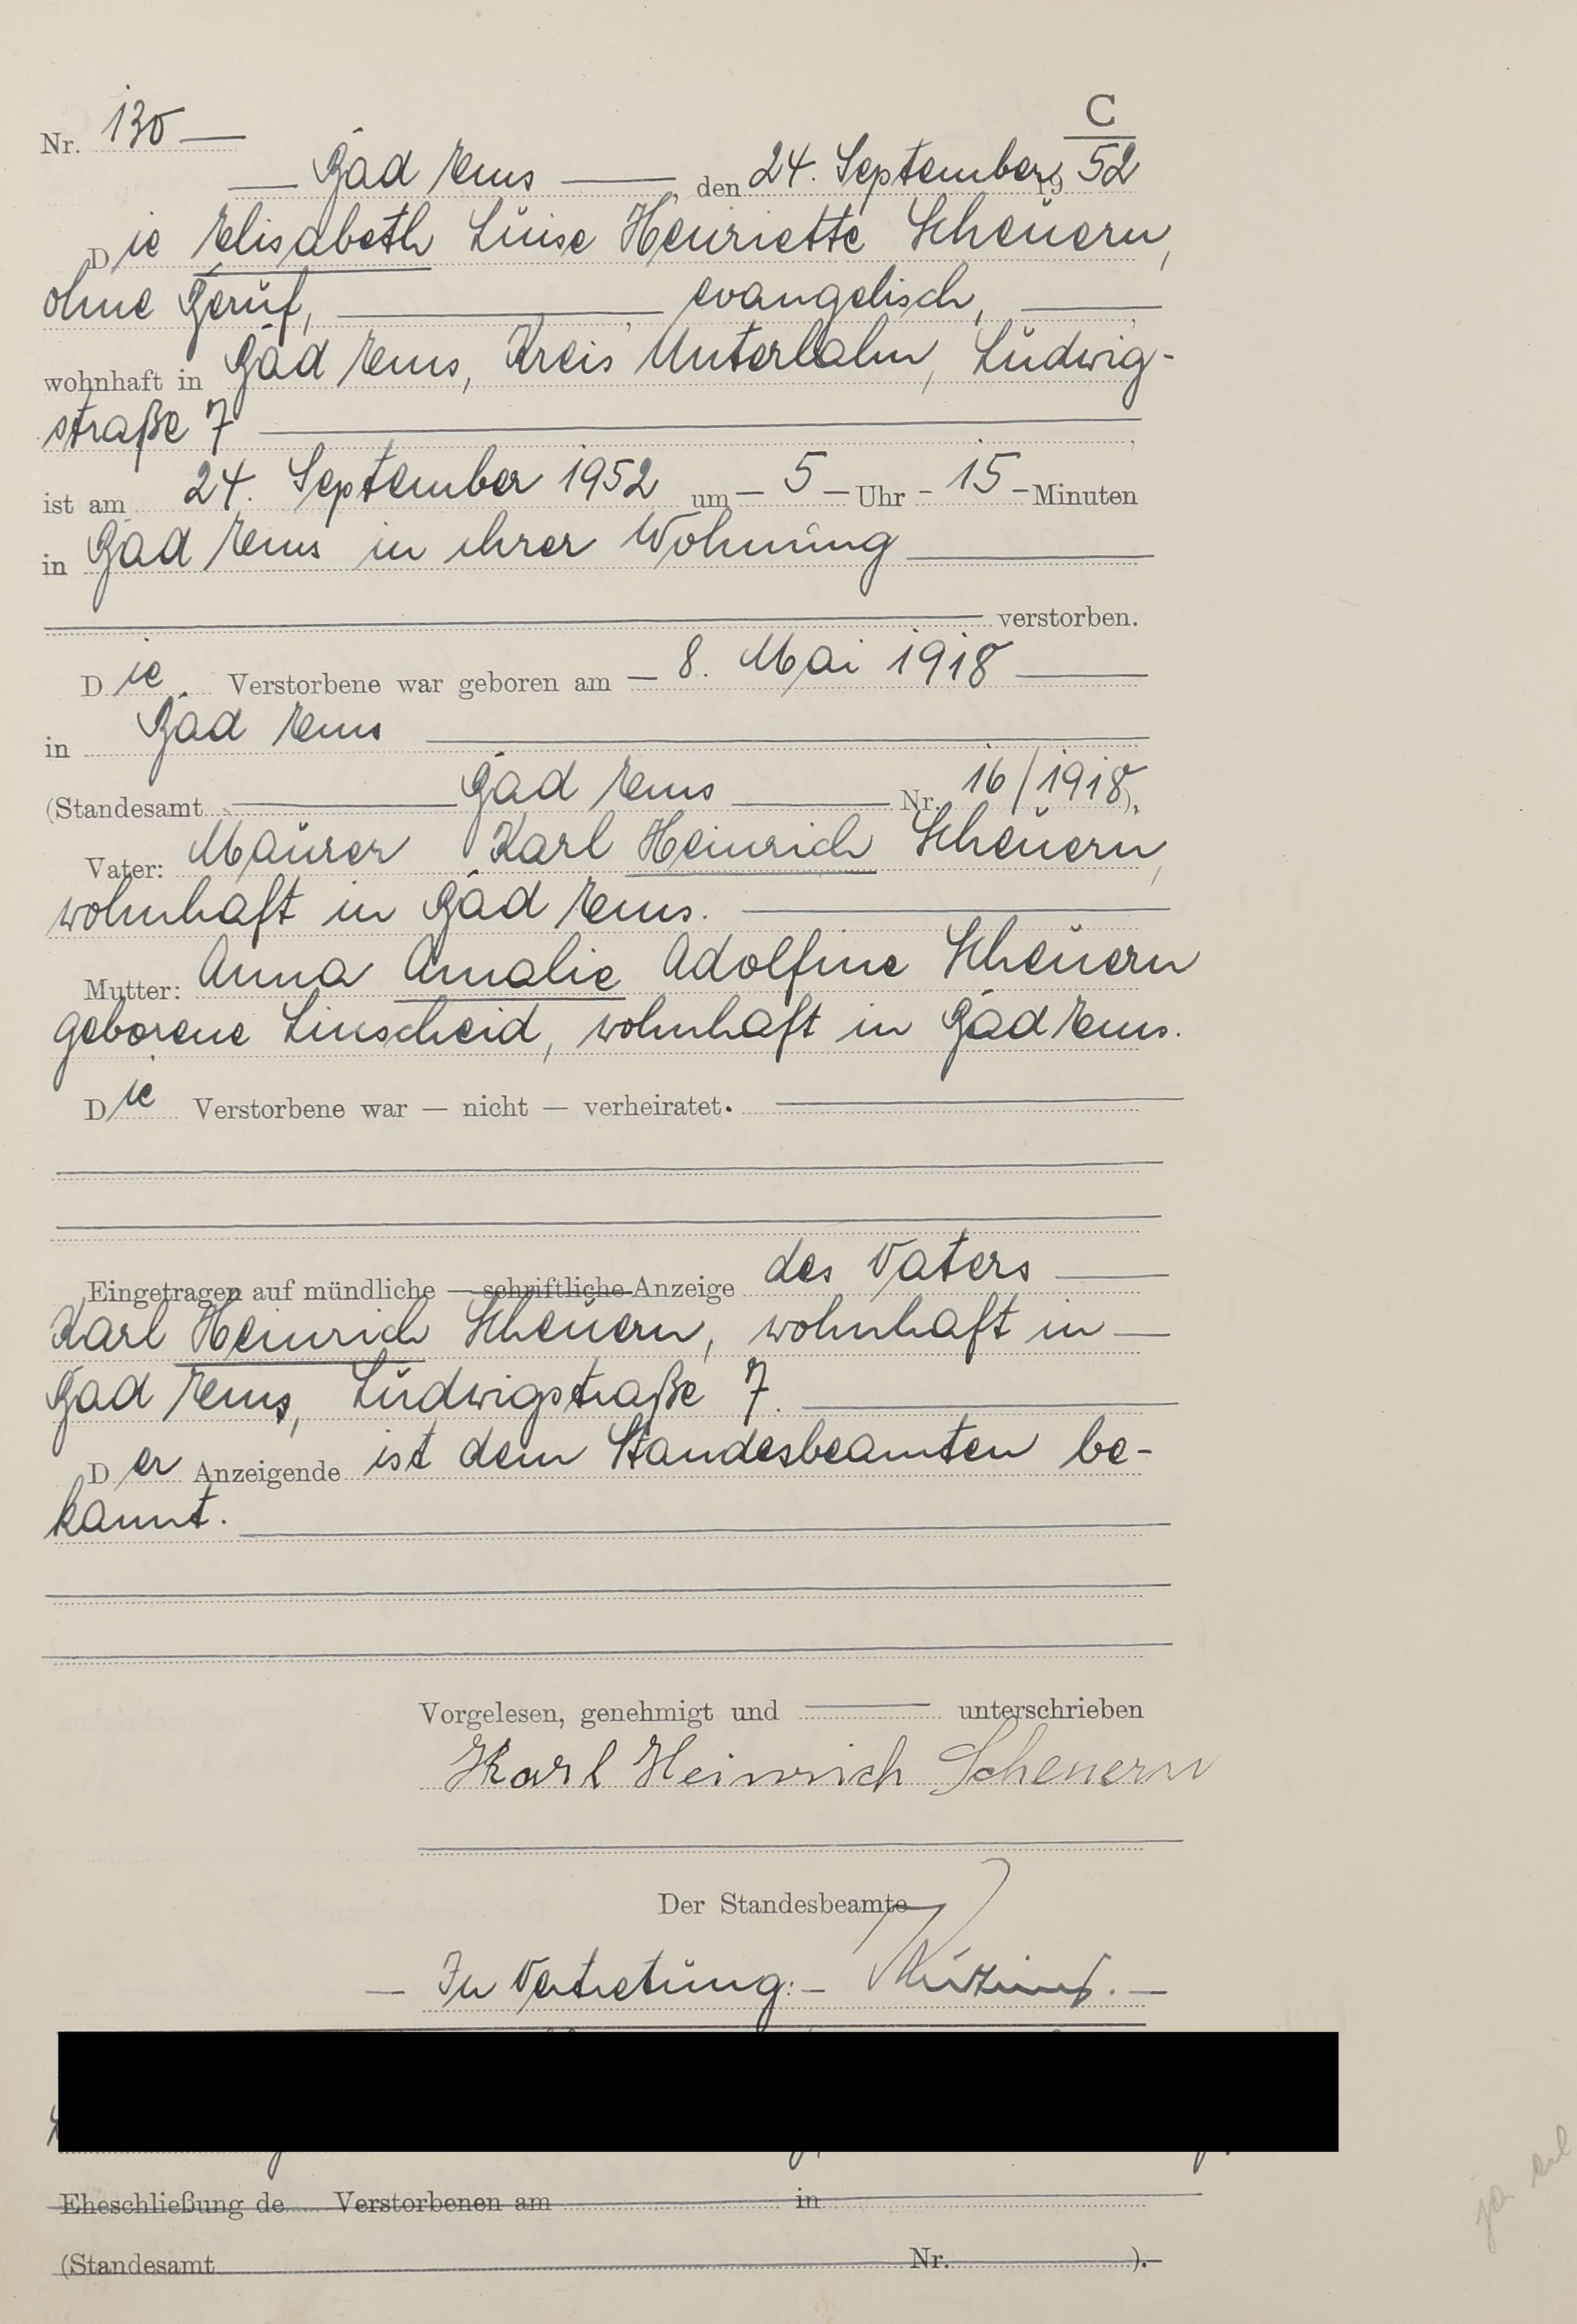 C
Nr. 130 —
— Bad Ems —, den 24. September 1952
Die Elisabeth Luise Henriette Scheuern,
ohne Beruf, — evangelisch, —
wohnhaft in Bad Ems, Kreis Unterlahn, Ludwig-
straße 7
ist am 24. September 1952 um — 5 — Uhr - 15 - Minuten
in Bad Ems in ihrer Wohnung
verstorben.
Die Verstorbene war geboren am — 8. Mai 1918 —
in Bad Ems
(Standesamt Bad Ems Nr. 16/1918),
Vater: Maurer Karl Heinrich Scheuern,
wohnhaft in Bad Ems. —
Mutter: Anna Amalie Adolfine Scheuern
geborene Linscheid, wohnhaft in Bad Ems.
Die Verstorbene war — nicht — verheiratet.
Eingetragen auf mündliche — schriftliche Anzeige des Vaters —
Karl Heinrich Scheuern, wohnhaft in —
Bad Ems, Ludwigstraße 7. —
Der Anzeigende ist dem Standesbeamten be-
kannt.
Vorgelesen, genehmigt und — unterschrieben
Karl Heinrich Scheuern
Der Standesbeamte
— In Vertretung: —
Eheschließung de Verstorbenen am in
(Standesamt Nr. ).